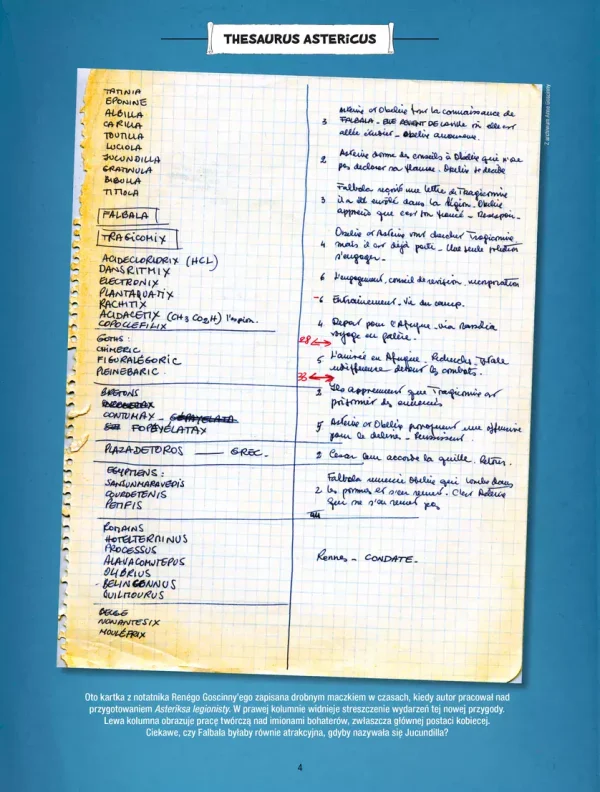 THESAURUS ASTERICUS
TATINIA
EPONINE
ALBILLA
CARILLA
TOUTILLA
LUCIOLA
JUCUNDILLA
GRATNULA
BIBULLA
TITIOLA
FALBALA
TRAGICOMIX
ACIDECLORIDRIX (HCL)
DANSRITMIX
ELECTRONIX
PLANTAQUATIX
RACHITIX
ACIDACETIX (CH3 CO2H)
COPOCLEFILIX
GOTHS :
CHIMERIC
FIGURALEGORIC
PLEINEBARIC
BRETONS
CONTUMAX - GÉPAYELATA
FOPÉYÉLATAX
PLAZADETOROS — GREC.
EGYPTIENS :
SANSUNMARAVEDIS
COURDETENIS
PETIFIS
ROMAINS
HOTELTERMINUS
PROCESSUS
ALAVACOMJTEPUS
OLIBRIUS
- BELINGONNUS
QUILMOURUS
BELGE
NONANTESIX
MOULÉFRIX
3 Astérix et Obélix font la connaissance de
FALBALA - ELLE REVIENT DE où elle est
allée étudier - Obélix amoureux.
2 Astérix donne des conseils à Obélix qui n'ose
pas déclarer sa flamme. Obélix se décide
3 Falbala reçoit une lettre de Tragicomix
il a été enrôlé dans la légion. Obélix
apprend que c'est son fiancé - Désespoir -
4 Obélix et Astérix vont chercher Tragicomix
mais il est déjà parti - Une seule solution
s'engager -
6 L'engagement, conseil de révision, incorporation
6 Entrainement - Vie du camp.
4 Départ pour l'Afrique via Massilia
voyage en galère.
28
5 L'arrivée en Afrique - Recherches, totale
indifférence devant les combats.
33
3 Ils apprennent que Tragicomix est
prisonnier des ennemis
5 Astérix et Obélix provoquent une offensive
pour le délivrer - Réussissent.
2 César leur accorde la quille. Retour.
2 Falbala remercie Obélix qui tombe dans
les pommes et s'en remet. C'est Astérix
qui ne s'en remet pas
44
Rennes - CONDATE -
Oto kartka z notatnika Renégo Goscinny'ego zapisana drobnym maczkiem w czasach, kiedy autor pracował nad
przygotowaniem Asteriksa legionisty. W prawej kolumnie widnieje streszczenie wydarzeń tej nowej przygody.
Lewa kolumna obrazuje pracę twórczą nad imionami bohaterów, zwłaszcza głównej postaci kobiecej.
Ciekawe, czy Falbala byłaby równie atrakcyjna, gdyby nazywała się Jucundilla?
4